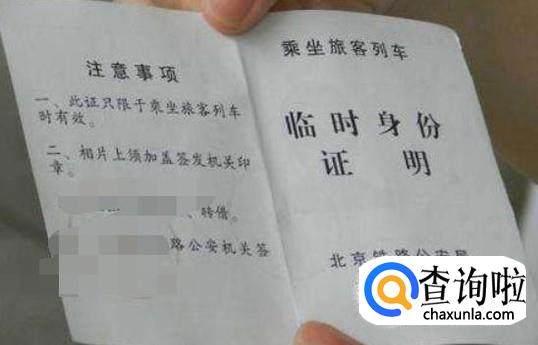 注意事项
一、此证只限于乘坐旅客列车
时有效。
二、相片上须加盖签发机关印
章。
、转借。
路公安机关签
乘坐旅客列车
临时身份
证明
北京铁路公安局
查询啦
chaxunla.com